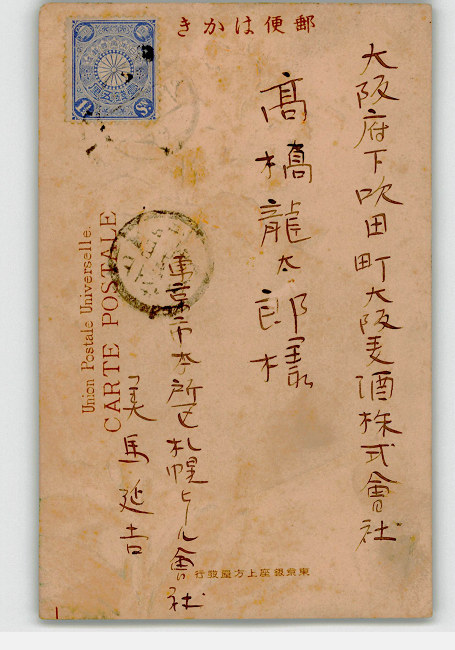 郵便はかき
大阪府下吹田町大阪麦酒株式會社
高橋龍太郎樣
東京市本所区札幌ビール會社
美馬延吉
Union Postale Universelle.
CARTE POSTALE
東京銀座上方屋發行